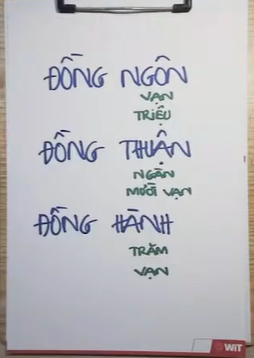 ĐỒNG NGÔN
VẠN
TRIỆU
ĐỒNG THUẬN
NGÀN
MƯỜI VẠN
ĐỒNG HÀNH
TRĂM
VẠN
WiT